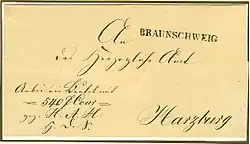 An
BRAUNSCHWEIG
das Herzogliche Amt
Anbei ein Beutel mit
= 540 # Cour =
gez. H. A. H.
H. D. S.
Harzburg